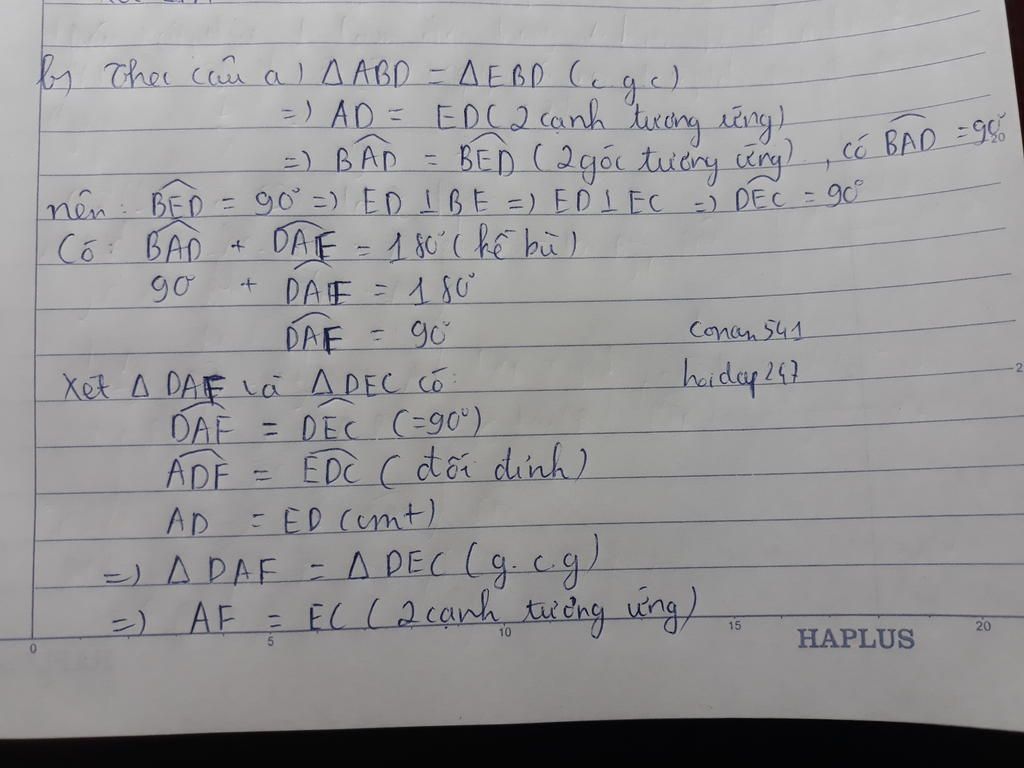 b) Theo câu a) ΔABD = ΔEBD (c g c)
=) AD = ED (2 cạnh tương ứng)
=) BAD = BED (2 góc tương ứng), có BAD = 90°
nên: BED = 90° =) ED ⊥ BE =) ED ⊥ EC =) DEC = 90°
Có: BAD + DAF = 180° (kề bù)
90 + DAF = 180°
DAF = 90°
conan541
Xét Δ DAF và Δ DEC có:
hoidap247
DAF = DEC (=90°)
ADF = EDC (đối đỉnh)
AD = ED (cmt)
=) Δ DAF = Δ DEC (g.c.g)
=) AF = EC (2 cạnh tương ứng)
0 5 10 15 20
HAPLUS